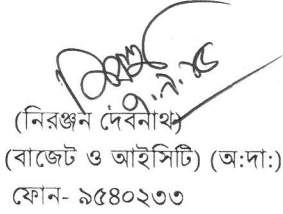 ৭.৭.১৫
(নিরঞ্জন দেবনাথ)
(বাজেট ও আইসিটি) (অ:দা:)
ফোন- ৯৫৪০২৩৩